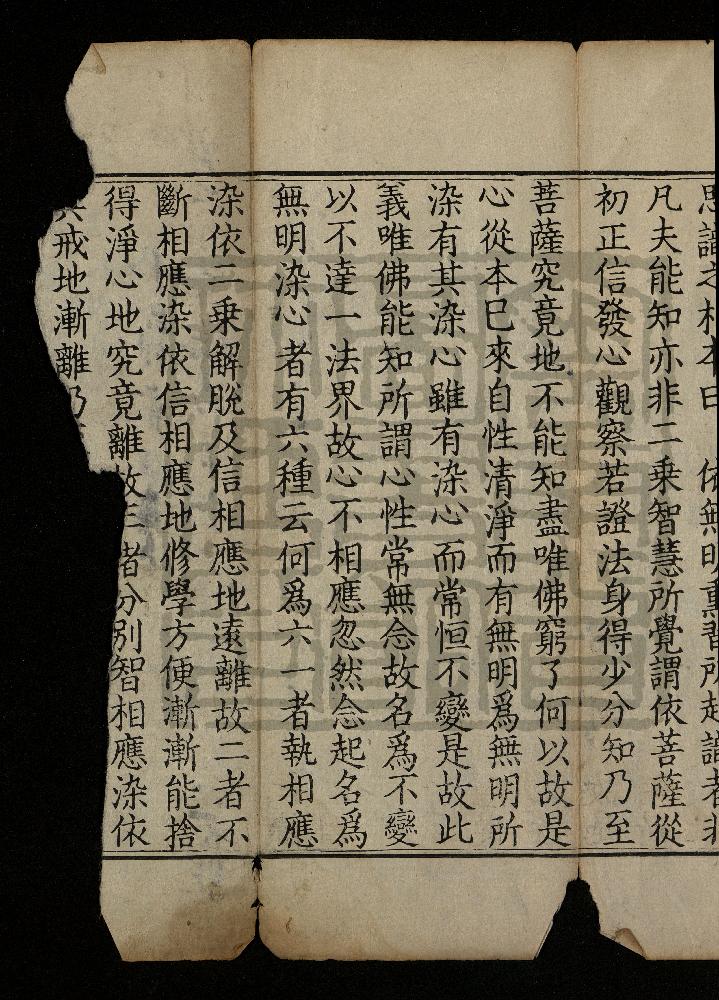 依無明熏習所起識者非
凡夫能知亦非二乗智慧所覺謂依菩薩從
初正信發心觀察若證法身得少分知乃至
菩薩究竟地不能知盡唯佛窮了何以故是
心從本已來自性清淨而有無明爲無明所
染有其染心雖有染心而常恒不變是故此
義唯佛能知所謂心性常無念故名爲不變
以不達一法界故心不相應忽然念起名爲
無明染心者有六種云何爲六一者執相應
染依二乗解脫及信相應地遠離故二者不
斷相應染依信相應地修學方便漸漸能捨
得淨心地究竟離故三者分別智相應染依
具戒地漸離乃